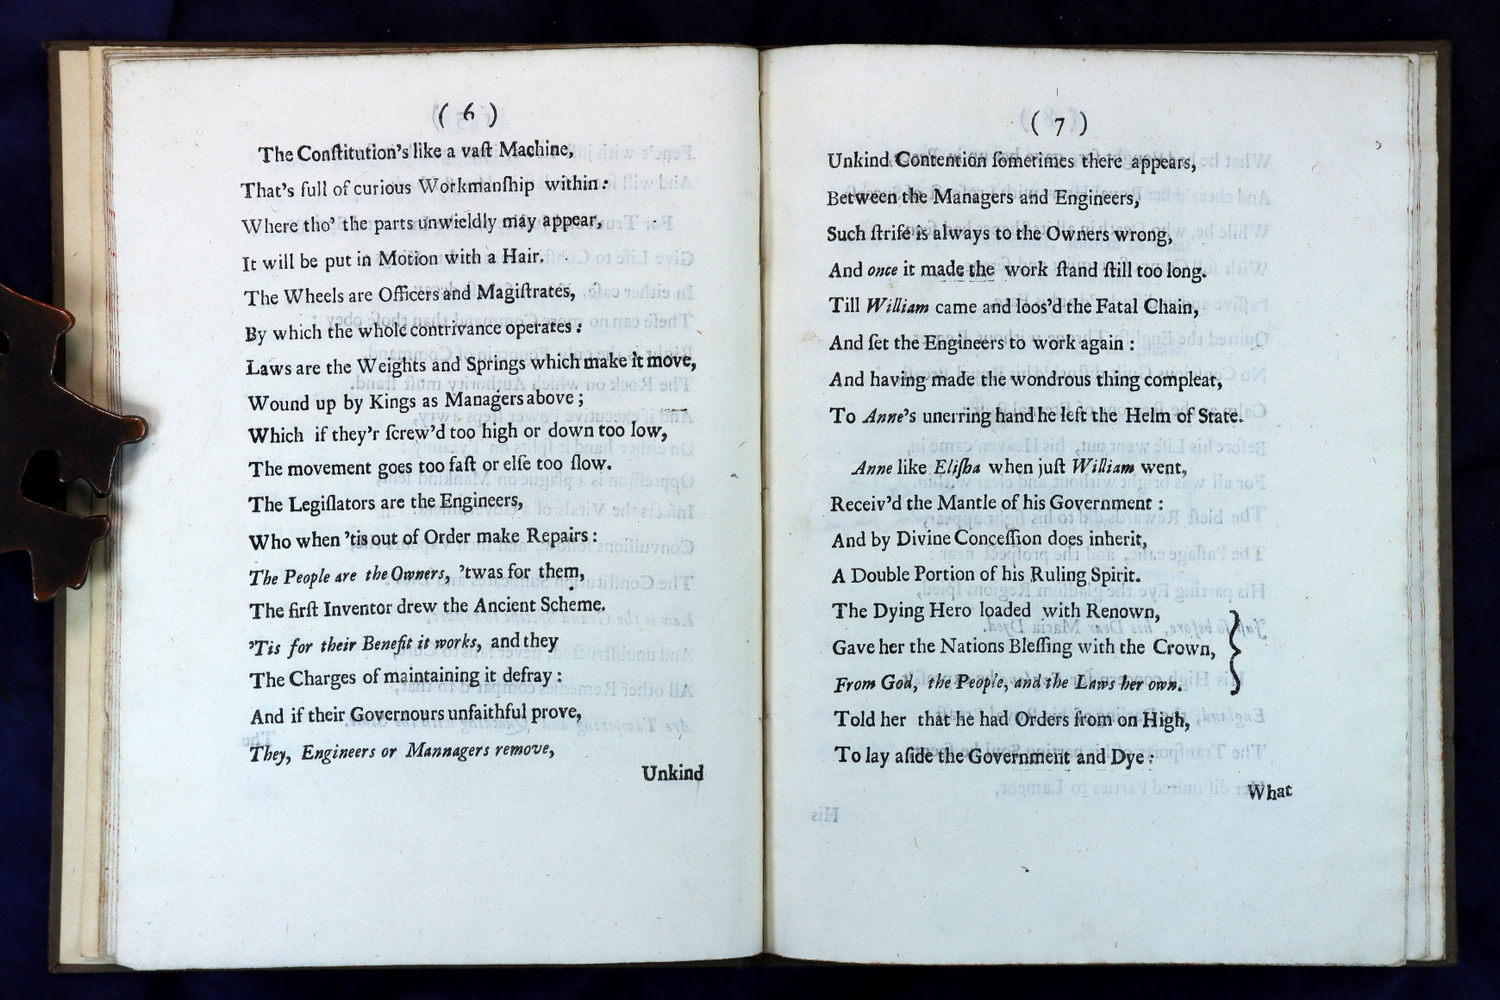 ( 6 )
The Conſtitution's like a vaſt Machine,
That's full of curious Workmanſhip within:
Where tho' the parts unwieldly may appear,
It will be put in Motion with a Hair.
The Wheels are Officers and Magiſtrates,
By which the whole contrivance operates:
Laws are the Weights and Springs which make it move,
Wound up by Kings as Managers above;
Which if they'r ſcrew'd too high or down too low,
The movement goes too faſt or elſe too ſlow.
The Legiſlators are the Engineers,
Who when 'tis out of Order make Repairs:
The People are the Owners, 'twas for them,
The firſt Inventor drew the Ancient Scheme.
'Tis for their Benefit it works, and they
The Charges of maintaining it defray:
And if their Governours unfaithful prove,
They, Engineers or Mannagers remove,
Unkind
( 7 )
Unkind Contention ſometimes there appears,
Between the Managers and Engineers,
Such ſtrife is always to the Owners wrong,
And once it made the work ſtand ſtill too long.
Till William came and loos'd the Fatal Chain,
And ſet the Engineers to work again:
And having made the wondrous thing compleat,
To Anne's unerring hand he left the Helm of State.
Anne like Eliſha when juſt William went,
Receiv'd the Mantle of his Government:
And by Divine Conceſſion does inherit,
A Double Portion of his Ruling Spirit.
The Dying Hero loaded with Renown,
Gave her the Nations Bleſſing with the Crown,
From God, the People, and the Laws her own.
Told her that he had Orders from on High,
To lay aſide the Government and Dye:
What